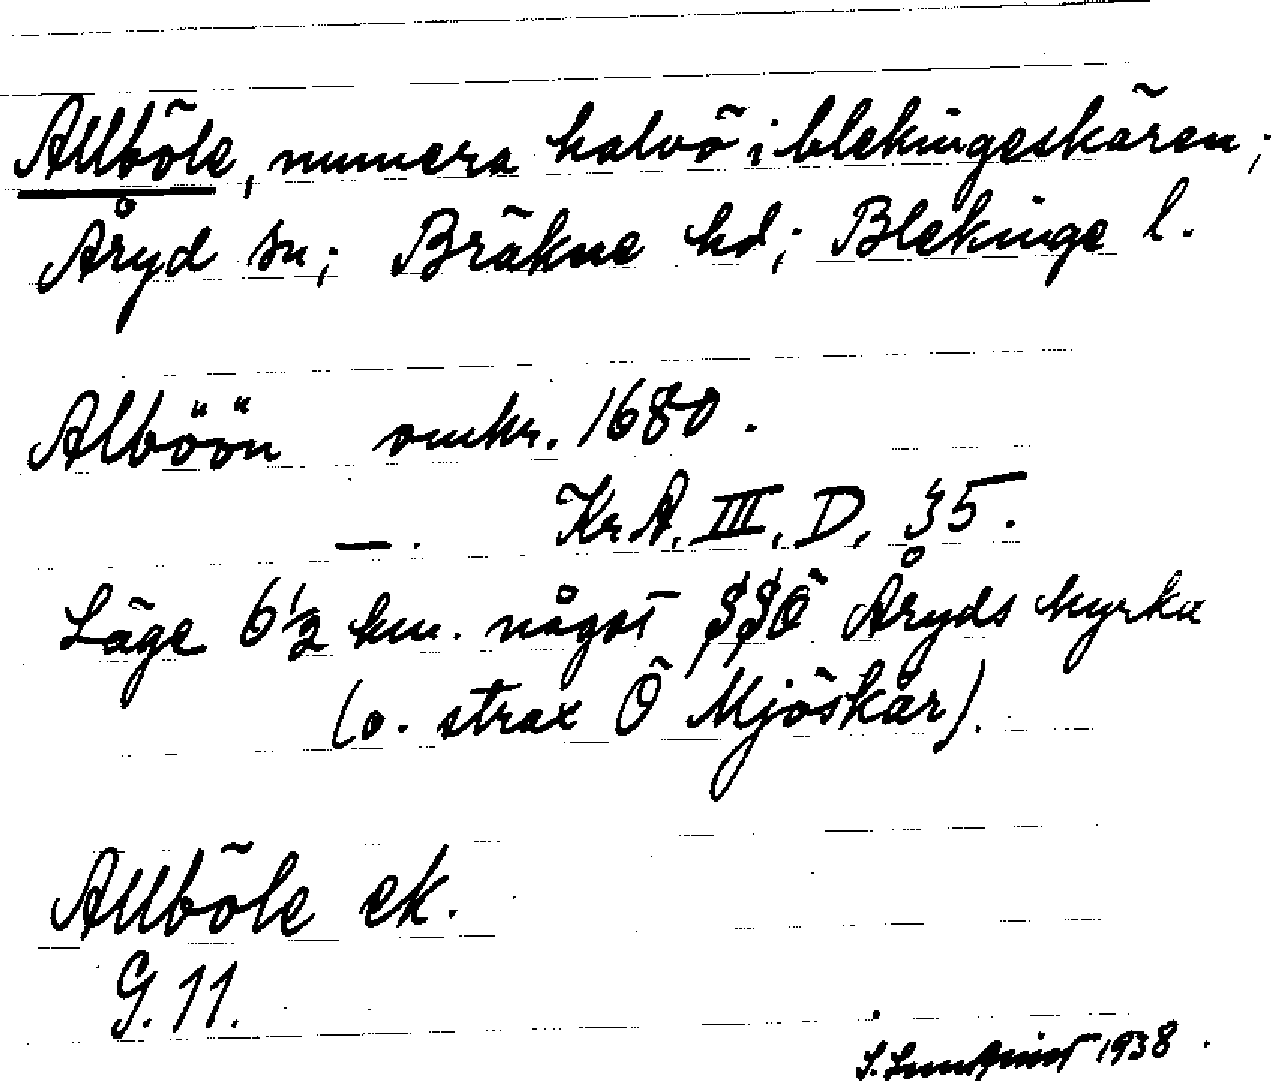 Allböle, numera halvö i blekingeskären;
Åryd sn; Bräkne hd; Blekinge l.
Alböön omkr. 1680.
—. Kr.A. III, D, 35.
Läge 6½ km. något SSÖ Åryds kyrka
(o. strax Ö Mjöskär).
Allböle ek.
G. 11.
S. Lundquist 1938.